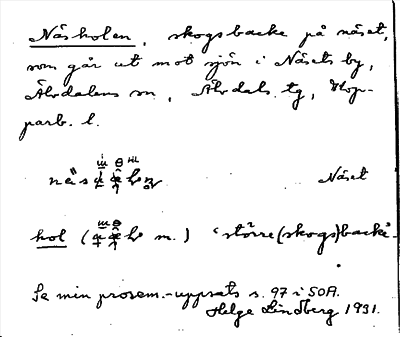 Näsholen, skogsbacke på näset,
som går ut mot sjön i Näsets by,
Älvdalens sn, Älvdals tg, Kop-
parb. l.
Näset
hol ( m.) 'större (skogs)backe'.
Se min prosem.-uppsats s. 97 i SOA.
Helge Lindberg 1931.